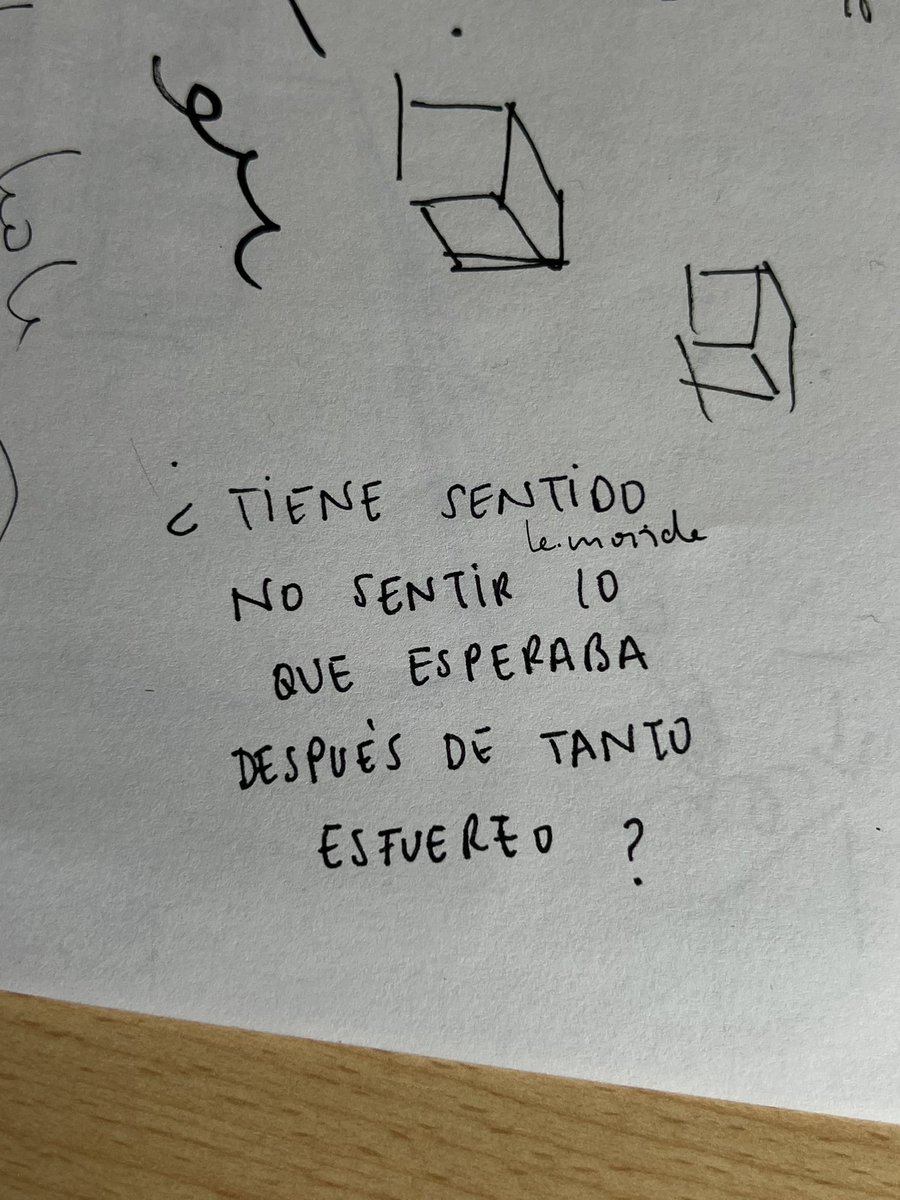 ¿TIENE SENTIDO
le.monde
NO SENTIR LO
QUE ESPERABA
DESPUÉS DE TANTO
ESFUERZO?